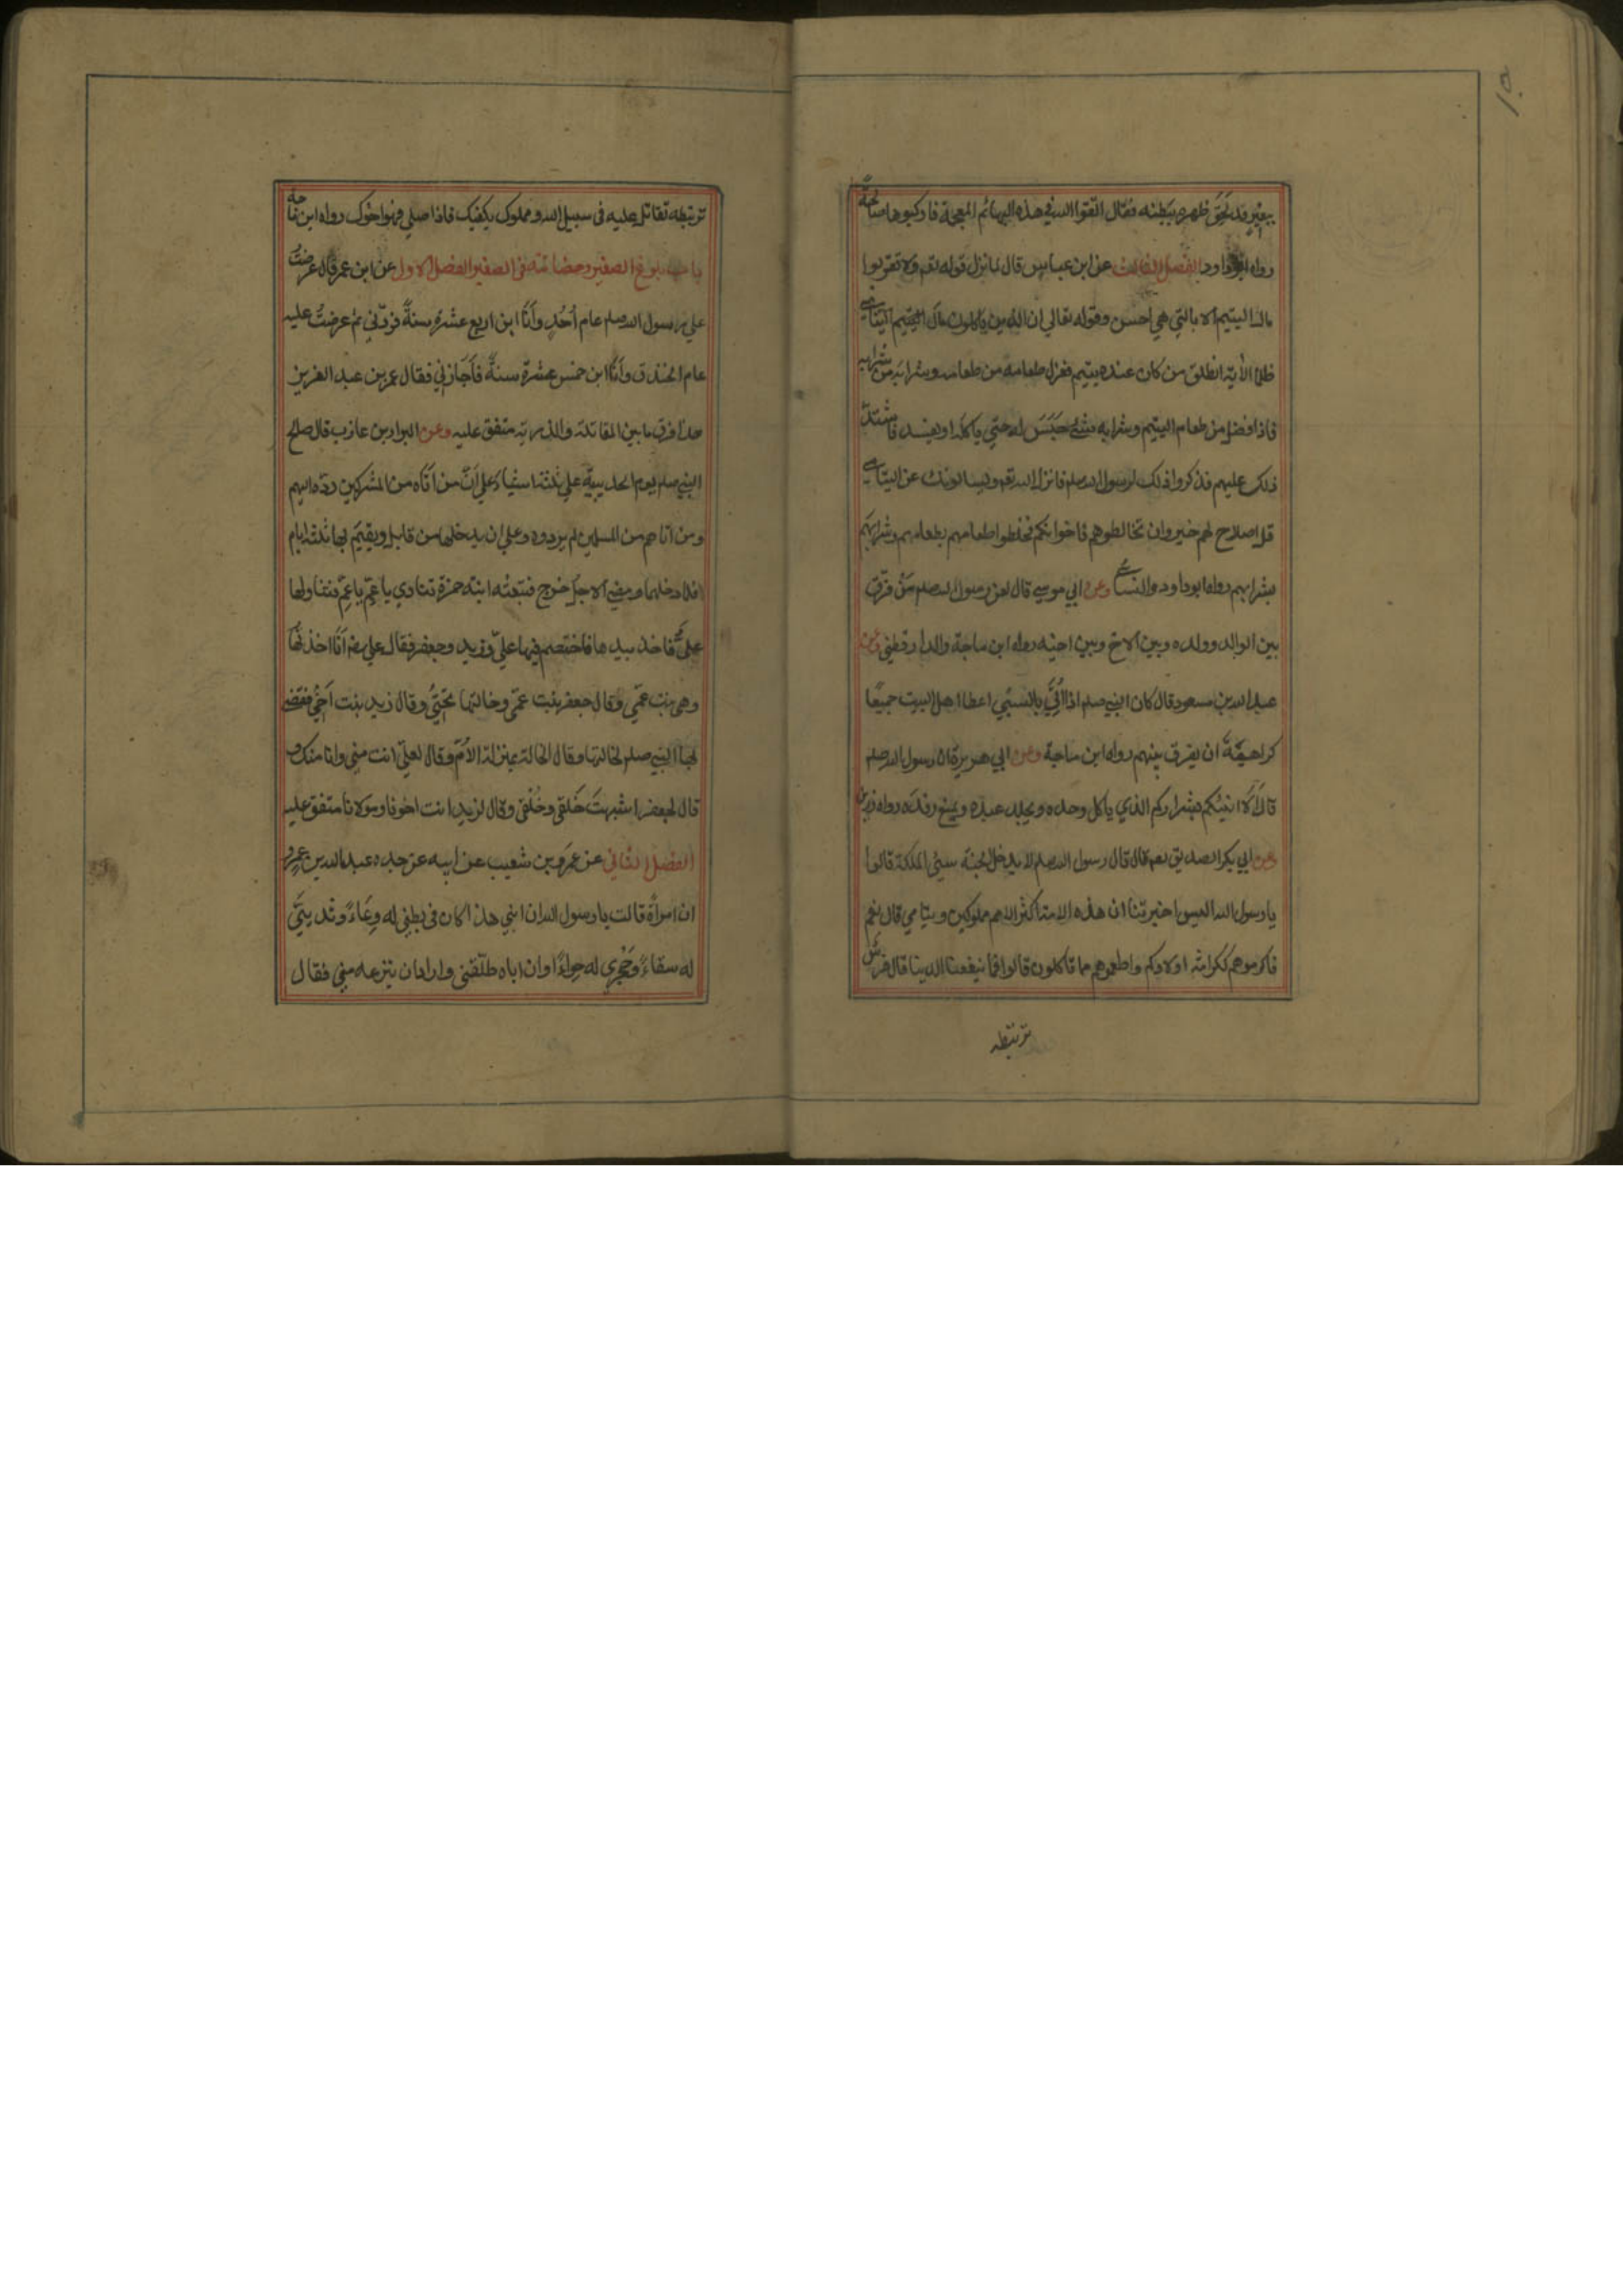 ببعير قد لَحِقَ ظهره ببَطنه فقال اتقوا الله في هذه البهائم المعجمة فاركبوها صالحةً
رواه ابوداود الفصل الثالث عن ابن عباس قال لما نزل قوله تعم ولا تقربوا
مال اليتيم الا بالتي هي احسن وقوله تعالي ان الذين ياكلون مال اليتيم اليتامي
ظلما الآية انطلق من كان عنده يتيم فعزل طعامه من طعامه وشرابه من شرابه
فاذا فضل من طعام اليتيم وشرابه شئ حَبَسَ له حتي ياكله او يفسد فاشتدّ
ذلك عليهم فذكروا ذلك لرسول الله صلم فانزل الله تعم ويسالونك عن اليتامي
قل اصلاح لهم خير وان تخالطوهم فاخوانكم فخلطوا طعامهم بطعامهم وشرابَهم
بشرابهم رواه ابوداود والنسائي وعن ابي موسي قال لعن رسول الله صلم مَنْ فرّق
بين الوالد وولده وبين الاخ وبين اخيه رواه ابن ماجة والدارقطني وعن
عبد الله بن مسعود قال كان النبي صلم اذا اُتِيَ بالسَّبْي اعطا اهل البيت جميعًا
كراهيةَ ان يفرق بينهم رواه ابن ماجة وعن ابي هريرة ان رسول الله صلم
قال اَلَا انبئكم بشراركم الذي ياكل وحده ويجلد عبده ويمنع رفده رواه رزين
وعن ابي بكر الصديق رضم قال قال رسول الله صلم لا يدخل الجنة سيئ الملكة قالوا
يا رسول الله اليس اخبرتنا ان هذه الامة اكثر الامم مملوكين ويتامي قال نعم
فاكرموهم ككرامة اولادكم واطعموهم مما تاكلون قالوا فما ينفعنا الدنيا قال فرسٌ
ترتبطه
ترتبطه تقاتل عليه في سبيل الله ومملوك يكفيك فاذا صلي فهو اخوك رواه ابن ماجه
باب بلوغ الصغير وحضانته في الصغير الفصل الاول عن ابن عمر قال عرضتُ
علي رسول الله صلم عام اُحُدٍ وأنا ابن اربع عشرة سنةً فردّني ثم عرضتُ عليه
عام الخندق وأنا ابن خمس عشرة سنةً فأجازني فقال عمر بن عبد العزيز
هذا فرق ما بين المقاتلة والذرية متفق عليه وعن البراء بن عازب قال صالح
النبي صلم يوم الحديبيّة علي ثلثة اشياء علي اَنّ من اَتاه من المشركين ردّه اليهم
ومن اتاهم من المسلمين لم يردوه وعلي ان يدخلها من قابل ويقيم بها ثلثة ايام
فلما دخلها ومضي الاجل خرج فتبعتْه ابنة حمزة تنادي يا عمّ يا عمّ فتناولها
عليٌّ فاخذ بيدها فاختصم فيها عليّ وزيد وجعفر فقال علي رضم اَنا اخذتُها
وهي بنت عمّي وقال جعفر بنت عمّي وخالتها تحتي وقال زيد بنت اَخي فقضي
بها النبي صلم لخالتها وقال الخالة بمنزلة الأمّ وقال لعليّ انت مني وانا منك و
قال لجعفر اشبهتَ خَلقي وخُلْقي وقال لزيد انت اخونا ومولانا متفق عليه
الفصل الثاني عن عمرو بن شعيب عن ابيه عن جده عبد الله بن عمرو
ان امرأة قالت يا رسول الله ان ابني هذا كان في بطني له وِعاءً وثديي
له سقاءً وحَجْري له حِواءً وان اباه طلّقني واراد ان ينزعه مني فقال